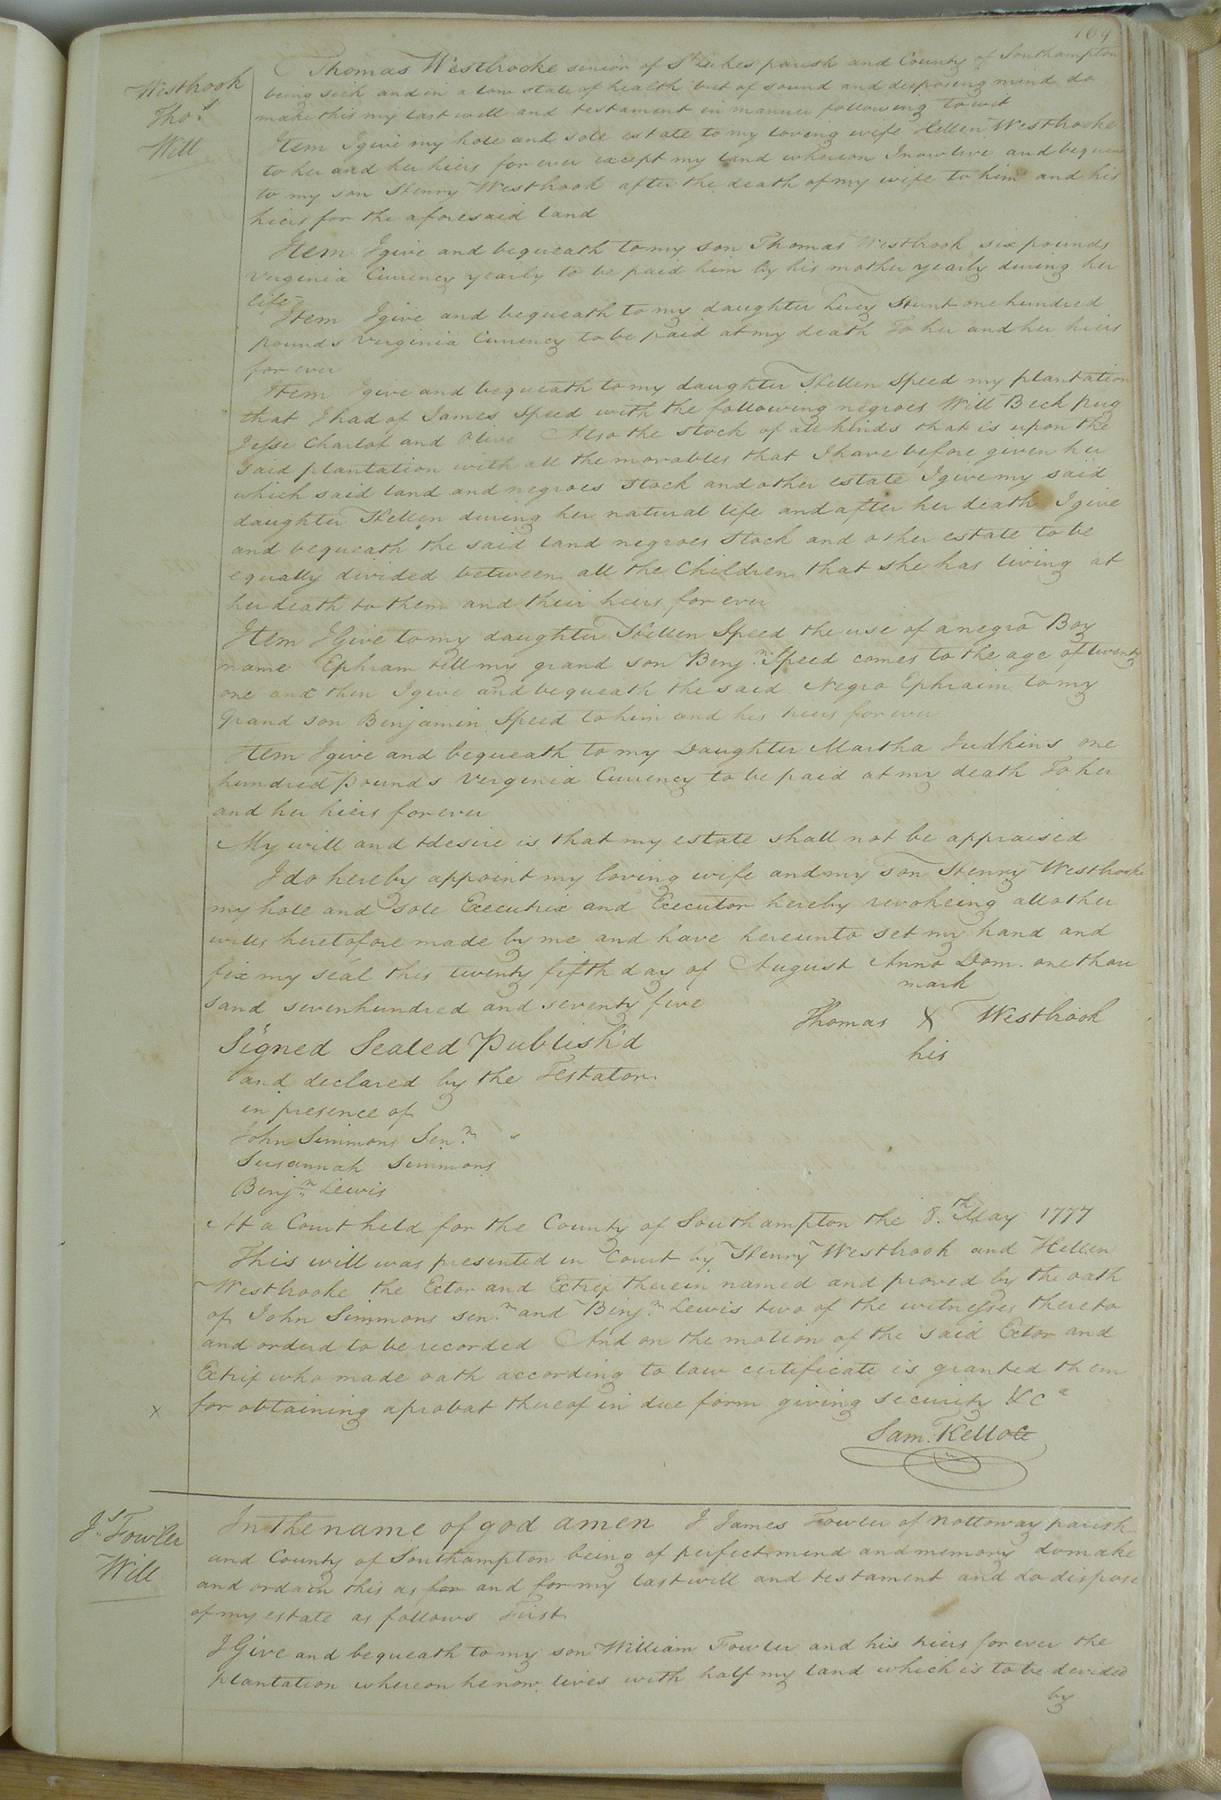 169
Westbrook
Tho.s
Will
Thomas Westbrooke senior of St Lukes parish and County of Southampton
being sick and in a low state of health but of sound and disposing mind do
make this my last will and testament in manner following to wit
Item I give my hole and sole estate to my loving wife Hellen Westbrooke
to her and her hiers for ever except my land whereon I now live and bequeath
to my son Henry Westbrook after the death of my wife to him and his
hiers for the aforesaid land
Item I give and bequeath to my son Thomas Westbrook six pounds
Verginia Currency yearly to be paid him by his mother yearly during her
life
Item I give and bequeath to my daughter Lucy Hunt one hundred
pounds Verginia Currency to be paid at my death To her and her hiers
for ever
Item I give and bequeath to my daughter Hellen Speed my plantation
that I had of James Speed with the following negroes Will Beck pug
Jesse Charlot and Olive Also the stock of all kinds that is upon the
said plantation with all the movables that I have before given her
which said land and negroes stock and other estate I give my said
daughter Hellen during her natural life and after her death I give
and bequeath the said land negroes stock and other estate to be
equally divided between all the Children that she has living at
her death to them and their hiers for ever
Item I Give to my daughter Hellen Speed the use of a negro Boy
name Ephram till my grand son Benj.n Speed comes to the age of twenty
one and then I give and bequeath the said Negro Ephraim to my
Grand son Benjamin Speed to him and his hiers for ever
Item I give and bequeath to my Daughter Martha Judkins one
hundred pounds Verginia Currency to be paid at my death To her
and her hiers for ever
My will and desire is that my estate shall not be appraised
I do hereby appoint my loving wife and my son Henry Westbrook
my hole and sole Executrix and Executor hereby revokeing all other
wills heretofore made by me and have hereunto set my hand and
fix my seal this twenty fifth day of August Anno Dom. one thou
sand sevenhundred and seventy five
mark
Thomas X Westbrook
his
Signed Sealed Publish'd
and declared by the Testator
in presence of
John Simmons Sen.r
Susannah Simmons
Benj.n Lewis
At a Court held for the County of Southampton the 8.th May 1777
This will was presented in Court by Henry Westbrook and Hellen
Westbrooke the Ector and Ectrix therein named and proved by the oath
of John Simmons sen.r and Benj.n Lewis two of the witnesses thereto
and orderd to be recorded And on the motion of the said Ector and
Ectrix who made oath according to law certificate is granted them
x for obtaining a probat thereof in due form giving security &c a
Sam. Kello
J.s Fowler
Will
In the name of god amen I James Fowler of Nottoway parish
and County of Southampton being of perfect mind and memory do make
and ordain this as for and for my last will and testament and do dispose
of my estate as follows First
I Give and bequeath to my son William Fowler and his hiers for ever the
plantation whereon he now lives with half my land which is to be devided
by